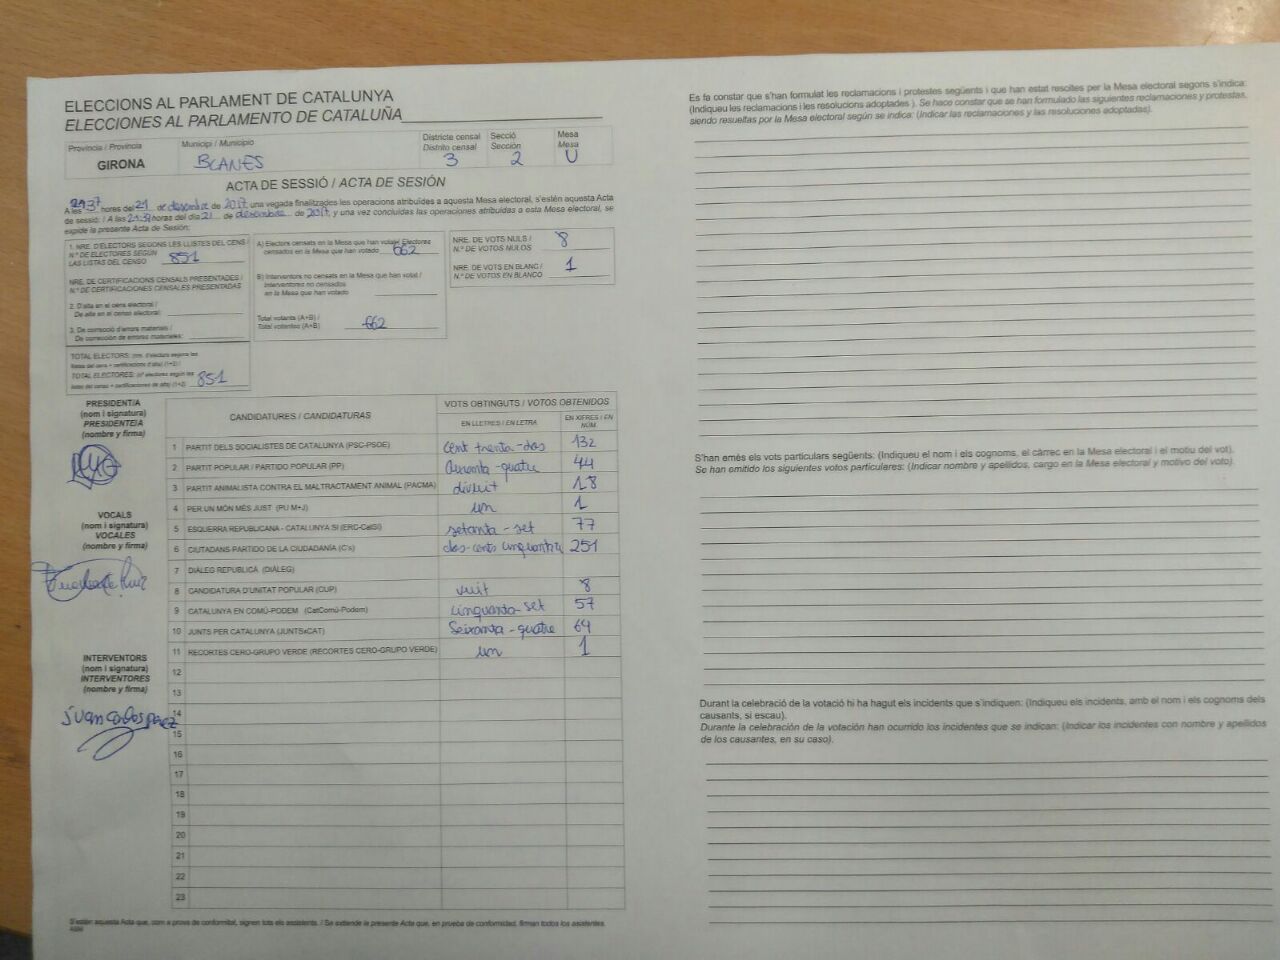 ELECCIONS AL PARLAMENT DE CATALUNYA
ELECCIONES AL PARLAMENTO DE CATALUÑA
Província / Provincia
GIRONA
Municipi / Municipio
BLANES
Districte censal
Distrito censal
3
Secció
Sección
2
Mesa
Mesa
U
ACTA DE SESSIÓ / ACTA DE SESIÓN
A les 21:37 hores del 21 de desembre de 2017 una vegada finalitzades les operacions atribuïdes a aquesta Mesa electoral, s'estén aquesta Acta
de sessió: / A las 21:37 horas del día 21 de desembre de 2017, y una vez concluidas las operaciones atribuidas a esta Mesa electoral, se
expide la presente Acta de Sesión:
1. NRE. D'ELECTORS SEGONS LES LLISTES DEL CENS /
N.º DE ELECTORES SEGÚN
LAS LISTAS DEL CENSO 851
NRE. DE CERTIFICACIONS CENSALS PRESENTADES /
N.º DE CERTIFICACIONES CENSALES PRESENTADAS
2. D'alta en el cens electoral /
De alta en el censo electoral:
3. De correcció d'errors materials /
De corrección de errores materiales:
TOTAL ELECTORS: (nre. d'electors segons les
llistes del cens + certificacions d'alta) (1+2) /
TOTAL ELECTORES: (nº electores según las
listas del censo + certificaciones de alta) (1+2) 851
A) Electors censats en la Mesa que han votat / Electores
censados en la Mesa que han votado 662
B) Interventors no censats en la Mesa que han votat /
Interventores no censados
en la Mesa que han votado
Total votants (A+B) /
Total votantes (A+B) 662
NRE. DE VOTS NULS /
N.º DE VOTOS NULOS 8
NRE. DE VOTS EN BLANC /
N.º DE VOTOS EN BLANCO 1
PRESIDENT/A
(nom i signatura)
PRESIDENTE/A
(nombre y firma)
VOCALS
(nom i signatura)
VOCALES
(nombre y firma)
INTERVENTORS
(nom i signatura)
INTERVENTORES
(nombre y firma)
juan carlos perez
CANDIDATURES / CANDIDATURAS
VOTS OBTINGUTS / VOTOS OBTENIDOS
EN LLETRES / EN LETRA
EN XIFRES / EN NÚM.
1 PARTIT DELS SOCIALISTES DE CATALUNYA (PSC-PSOE) cent trenta-dos 132
2 PARTIT POPULAR / PARTIDO POPULAR (PP) Quaranta-quatre 44
3 PARTIT ANIMALISTA CONTRA EL MALTRACTAMENT ANIMAL (PACMA) divuit 18
4 PER UN MÓN MÉS JUST (PU M+J) un 1
5 ESQUERRA REPUBLICANA - CATALUNYA SÍ (ERC-CatSí) setanta-set 77
6 CIUTADANS PARTIDO DE LA CIUDADANÍA (C's) dos-cents cinquanta 251
7 DIÀLEG REPUBLICÀ (DIÀLEG)
8 CANDIDATURA D'UNITAT POPULAR (CUP) vuit 8
9 CATALUNYA EN COMÚ-PODEM (CatComú-Podem) cinquanta-set 57
10 JUNTS PER CATALUNYA (JUNTSxCAT) Seixanta-quatre 64
11 RECORTES CERO-GRUPO VERDE (RECORTES CERO-GRUPO VERDE) un 1
12
13
14
15
16
17
18
19
20
21
22
23
S'estén aquesta Acta que, com a prova de conformitat, signen tots els assistents. / Se extiende la presente Acta que, en prueba de conformidad, firman todos los asistentes.
Es fa constar que s'han formulat les reclamacions i protestes següents i que han estat resoltes per la Mesa electoral segons s'indica:
(Indiqueu les reclamacions i les resolucions adoptades ). Se hace constar que se han formulado las siguientes reclamaciones y protestas,
siendo resueltas por la Mesa electoral según se indica: (Indicar las reclamaciones y las resoluciones adoptadas).
S'han emès els vots particulars següents: (Indiqueu el nom i els cognoms, el càrrec en la Mesa electoral i el motiu del vot).
Se han omitido los siguientes votos particulares: (Indicar nombre y apellidos, cargo en la Mesa electoral y motivo del voto).
Durant la celebració de la votació hi ha hagut els incidents que s'indiquen: (Indiqueu els incidents, amb el nom i els cognoms dels
causants, si escau).
Durante la celebración de la votación han ocurrido los incidentes que se indican: (Indicar los incidentes con nombre y apellidos
de los causantes, en su caso).